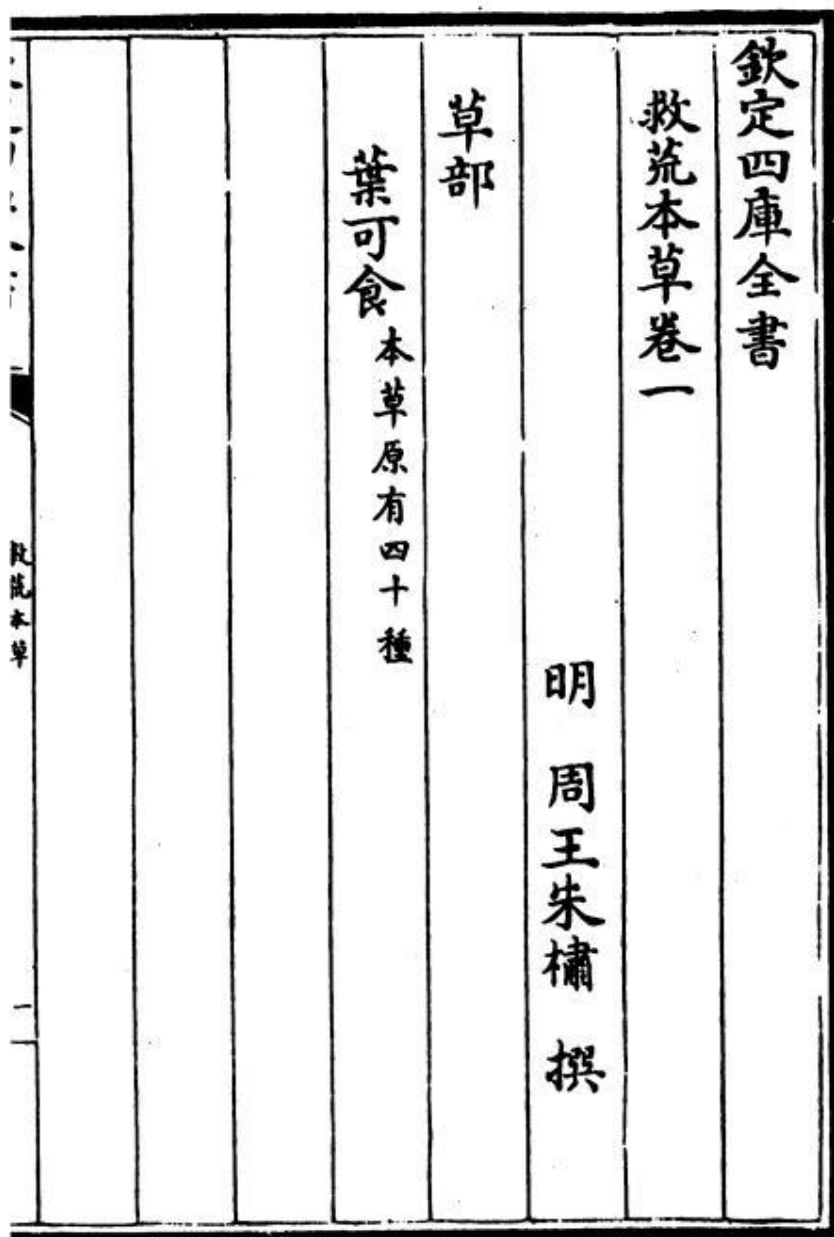 欽定四庫全書
救荒本草卷一
明 周王朱橚 撰
草部
葉可食 本草原有四十種
救荒本草
一